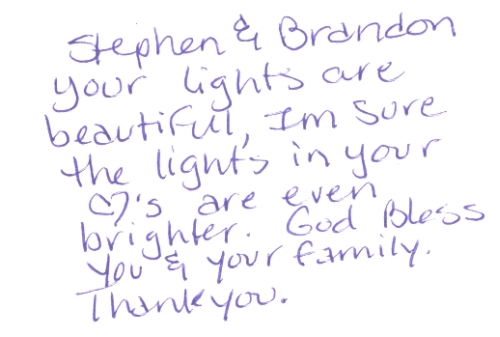 Stephen & Brandon
your lights are
beautiful, Im sure
the lights in your
♡'s are even
brighter. God Bless
you & your family.
Thank you.